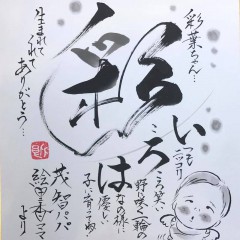 彩葉ちゃん…
彩
いつもニッコリ
ころころ笑い
野に咲く一輪の
はなの様に…優しい
子に育ってね
茂智パパ
絵里香ママ
より
生まれて
くれて
ありがとう…